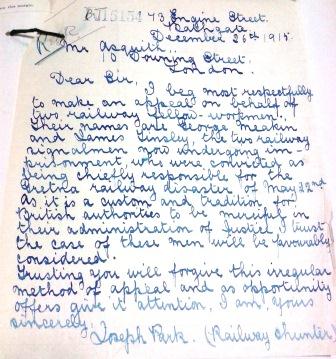 BJ15154 73 Engine Street.
Bathgate
December 26th 1915.
Mr Asquith.
10 Downing Street.
London.
Dear Sir,
I beg most respectfully
to make an appeal on behalf of
two railway fellow-workmen.
Their names are George Meakin
and James Tinsley, the two railway
signalmen now undergoing im-
prisonment, who were convicted as
being chiefly responsible for the
Gretna railway disaster of May 22nd
As it is a custom and tradition for
British authorities to be merciful in
their administration of Justice I trust
the case of these men will be favourably
considered.
Trusting you will forgive this irregular
method of appeal and as opportunity
offers give it attention, I am, yours
sincerely,
Joseph Park. (Railway Shunter)